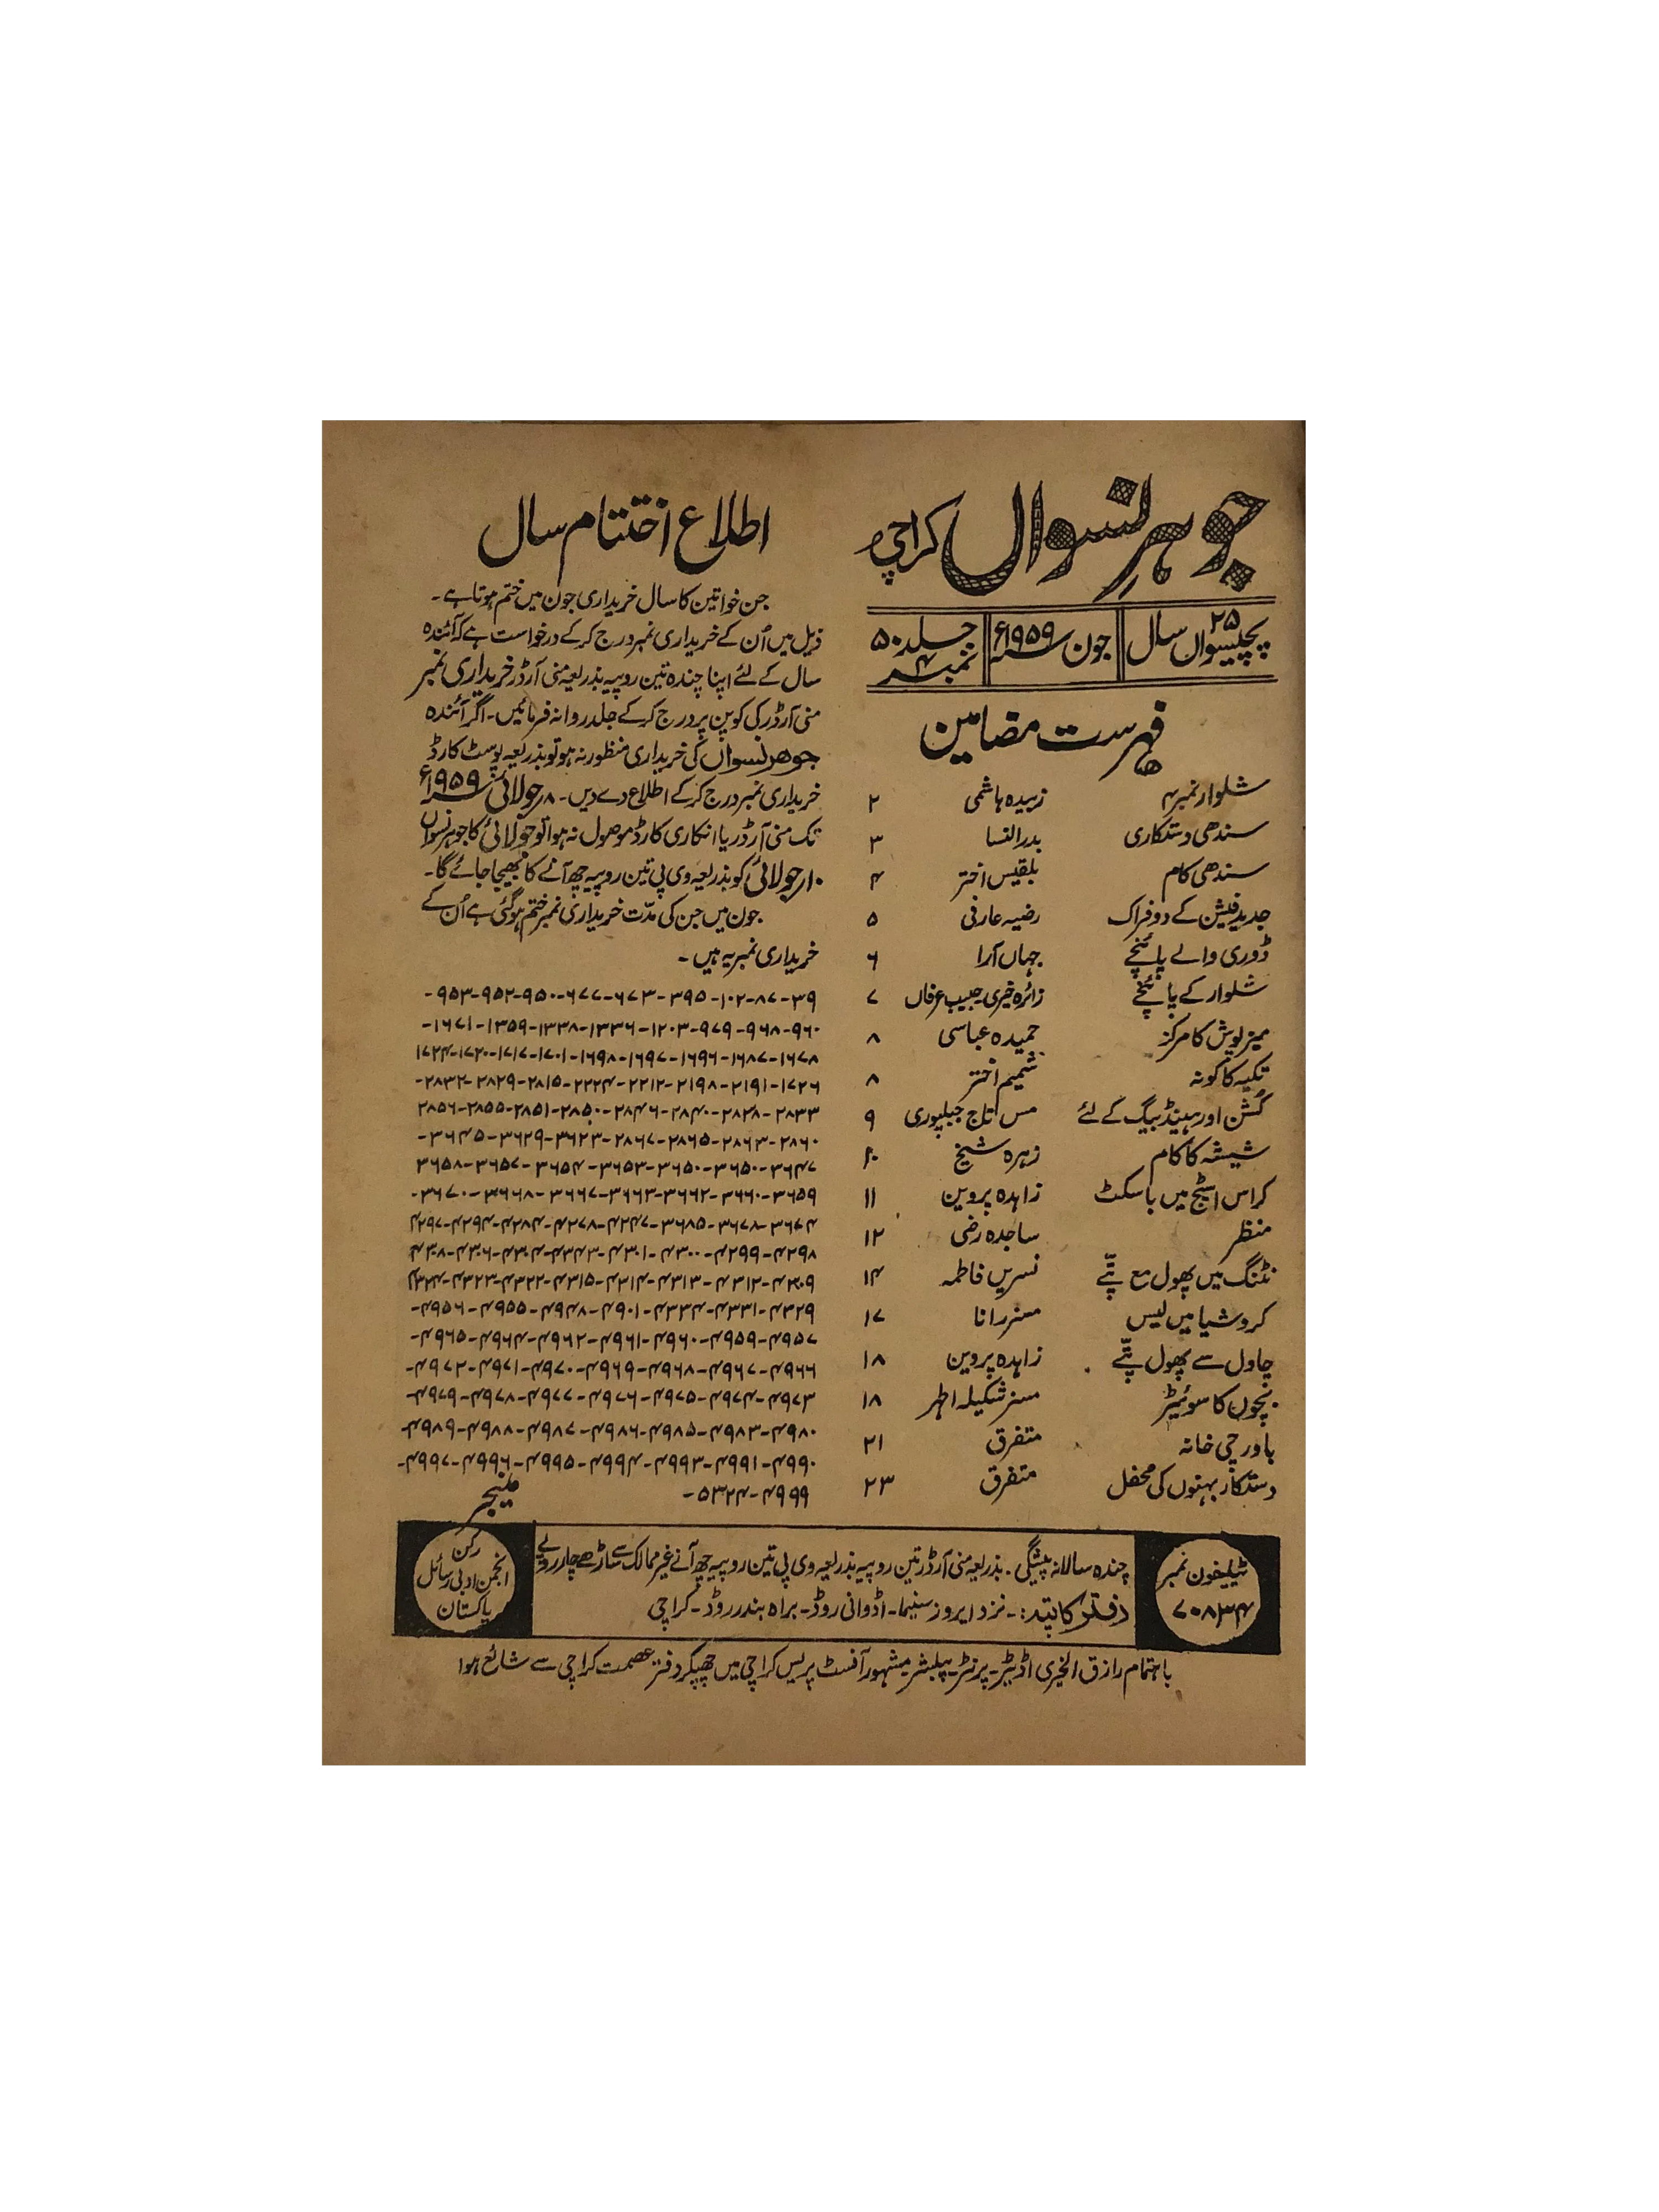 جوہر نسواں کراچی
۲۵
پچیسواں سال
جون ۱۹۵۹ء
جلد ۵۰
نمبر ۴
فہرست مضامین
شلوار نمبر ۴ زبیدہ ہاشمی ۲
سندھی دستکاری بدر النسا ۳
سندھی کام بلقیس اختر ۴
جدید فیشن کے دو فراک رضیہ عارفی ۵
ڈوری والے پائنچے جہاں آرا ۶
شلوار کے پائنچے زائرہ خیری۔ حبیب عرفاں ۷
میز پوش کا مرکز حمیدہ عباسی ۸
تکیہ کا کونہ شمیم اختر ۸
کُشن اور ہینڈ بیگ کے لئے مس تاج جبلپوری ۹
شیشہ کا کام زہرہ شیخ ۱۰
کراس اسٹچ میں باسکٹ زاہدہ پروین ۱۱
منظر ساجدہ رضی ۱۲
نٹنگ میں پھول مع پتّے نسریں فاطمہ ۱۴
کروشیا میں لیس مسز رانا ۱۷
چاول سے پھول پتّے زاہدہ پروین ۱۸
بچّوں کا سوئیٹر مسز شکیلہ اطہر ۱۸
باورچی خانہ متفرق ۲۱
دستکار بہنوں کی محفل متفرق ۲۳
اطلاع اختتام سال
جن خواتین کا سال خریداری جون میں ختم ہوتا ہے۔
ذیل میں اُن کے خریداری نمبر درج کر کے درخواست ہے کہ آئندہ
سال کے لئے اپنا چندہ تین روپیہ بذریعہ منی آرڈر خریداری نمبر
منی آرڈر کی کوپن پر درج کر کے جلد روانہ فرمائیں۔ اگر آئندہ
جوہر نسواں کی خریداری منظور نہ ہو تو بذریعہ پوسٹ کارڈ
خریداری نمبر درج کر کے اطلاع دے دیں۔ ۸؍ جولائی ۱۹۵۹ء
تک منی آرڈر یا انکاری کارڈ موصول نہ ہوا تو جولائی کا جوہر نسواں
۱۰؍ جولائی کو بذریعہ وی پی تین روپیہ چھ آنے کا بھیجا جائے گا۔
جون میں جن کی مدّت خریداری نمبر ختم ہو گئی ہے اُن کے
خریداری نمبر یہ ہیں۔
۳۹-۸۷-۱۰۲-۳۹۵-۶۷۳-۶۷۷-۹۵۰-۹۵۲-۹۵۳-
۹۶۰-۹۶۸-۹۷۹-۱۲۰۳-۱۳۳۶-۱۳۳۸-۱۳۵۹-۱۶۷۱-
۱۶۷۸-۱۶۸۷-۱۶۹۶-۱۶۹۷-۱۶۹۸-۱۷۰۱-۱۷۱۷-۱۷۲۰-۱۷۲۴
۱۷۲۶-۲۱۹۱-۲۱۹۸-۲۲۱۲-۲۲۲۴-۲۸۱۵-۲۸۲۹-۲۸۳۲-
۲۸۳۳-۲۸۲۸-۲۸۴۰-۲۸۴۶-۲۸۵۰-۲۸۵۱-۲۸۵۵-۲۸۵۶
۲۸۶۰-۲۸۶۳-۲۸۶۵-۲۸۶۷-۳۶۲۳-۳۶۲۹-۳۶۴۵-
۳۶۴۷-۳۶۵۰-۳۶۵۰-۳۶۵۳-۳۶۵۴-۳۶۵۷-۳۶۵۸
۳۶۵۹-۳۶۶۰-۳۶۶۲-۳۶۶۳-۳۶۶۷-۳۶۶۸-۳۶۷۰-
۳۶۷۴-۳۶۷۸-۳۶۸۵-۴۲۴۷-۴۲۷۸-۴۲۷۴-۴۲۹۴-۴۲۹۷
۴۲۹۸-۴۲۹۹-۴۳۰۰-۴۳۰۱-۴۳۰۳-۴۳۰۴-۴۳۰۶-۴۳۰۷
۴۳۰۹-۴۳۱۲-۴۳۱۳-۴۳۱۴-۴۳۱۵-۴۳۲۲-۴۳۲۳-۴۳۲۴
۴۳۲۹-۴۳۳۱-۴۳۳۴-۴۹۰۱-۴۹۴۷-۴۹۵۵-۴۹۵۶-
۴۹۵۷-۴۹۵۹-۴۹۶۰-۴۹۶۱-۴۹۶۲-۴۹۶۴-۴۹۶۵-
۴۹۶۶-۴۹۶۷-۴۹۶۸-۴۹۶۹-۴۹۷۰-۴۹۷۱-۴۹۷۲-
۴۹۷۳-۴۹۷۴-۴۹۷۵-۴۹۷۶-۴۹۷۷-۴۹۷۸-۴۹۷۹-
۴۹۸۰-۴۹۸۳-۴۹۸۵-۴۹۸۶-۴۹۸۷-۴۹۸۸-۴۹۸۹-
۴۹۹۰-۴۹۹۱-۴۹۹۳-۴۹۹۴-۴۹۹۵-۴۹۹۶-۴۹۹۷-
۴۹۹۹-۵۳۲۴-
منیجر
ٹیلیفون نمبر
۷۰۸۳۴
چندہ سالانہ پیشگی۔ بذریعہ منی آرڈر تین روپیہ بذریعہ وی پی تین روپیہ چھ آنے غیر ممالک سے ساڑھے چار روپے
دفتر کا پتہ:۔ نزد ایروز سنیما۔ اڈوانی روڈ۔ براہ بندر روڈ۔ کراچی
رکن
انجمن ادبی رسائل
پاکستان
باہتمام رازق الخیری اڈیٹر۔ پرنٹر۔ پبلشر۔ مشہور آفسٹ پریس کراچی میں چھپکر دفتر عصمت کراچی سے شائع ہوا